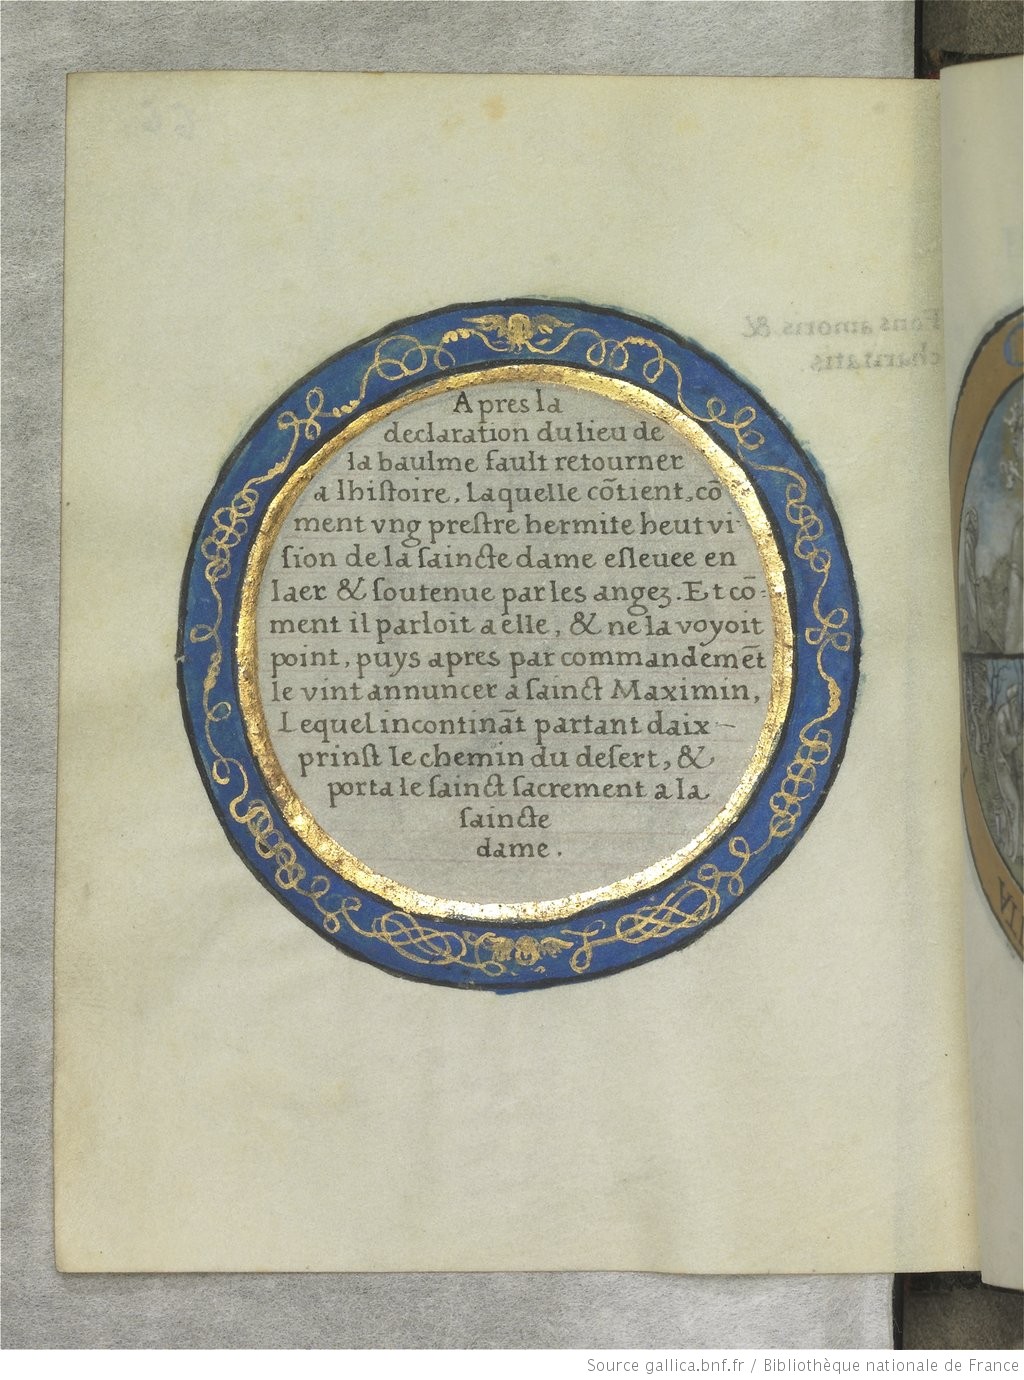 Apres la
declaration du lieu de
la baulme fault retourner
a lhistoire, Laquelle cõtient, cõ
ment vng prestre hermite heut vi-
sion de la saincte dame esleuee en
laer & soutenue par les angez. Et cõ-
ment il parloit a elle, & ne la voyoit
point, puys apres par commandemẽt
le vint annuncer a sainct Maximin,
Lequel incontinãt partant daix
prinst le chemin du desert, &
porta le sainct sacrement a la
saincte
dame.
Fons amoris &
charitatis.
VII
Source gallica.bnf.fr / Bibliothèque nationale de France